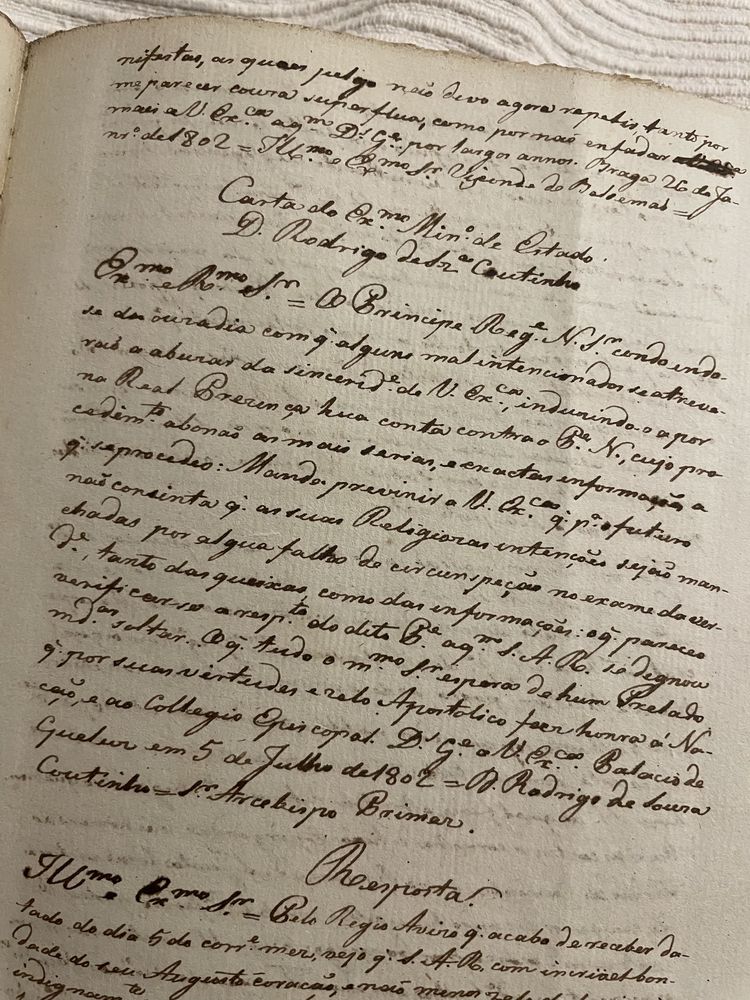 nifestas, as quaes julgo não devo agora repetir, tanto por
me parecer couza superflua, como por não enfadar
mais a V. Ex.cia a q.m D.s G.e por largos annos. Braga 26 de Ja-
nr.o de 1802 = Ill.mo e Ex.mo Sr Visconde de Balsemão =
Carta do Ex.mo Min.o de Estado
D. Rodrigo de Sz.a Coutinho
Ex.mo e R.mo S.r = O Principe Reg.e N. S.r
se da ouzadia com q' alguns mal intencionados se atreve-
rão a abuzar da sincerid.e de V. Ex.cia, induzindo-o a por
na Real Prezença hua conta contra o P.e N., cujo pro
cedim.to abonão as mais serias, e exactas informações a
q' se procedeo: Manda previnir a V. Ex.cia q' p.a o futuro
não consinta q' as suas Religiozas intenções sejão man-
chadas por algua falha de circunspeção no exame da ver-
d.e, tanto das queixas, como das informações: o q' pareceo
verificar-se a resp.to do dito P.e a q.m S. A. R. se dignou
md.ar soltar. O q' tudo o m.mo S.r espera de hum Prelado
q' por suas virtudes e zelo Apostolico fez honra á Na-
ção, e ao Collegio Episcopal. D.s G.e a V. Ex.cia Palacio de
Queluz em 5 de Julho de 1802 = D. Rodrigo de Souza
Coutinho = S.r Arcebispo Primaz.
Resposta.
Ill.mo e Ex.mo S.r = Pelo Regio Avizo q' acabo de receber da-
tado do dia 5 do corr.e mez, vejo q' S. A. R. com incrivel bon-
dade do seu Augusto coração, e não menos zelo
indignam.te